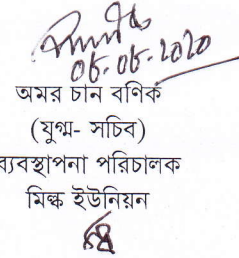 06.06.2020
অমর চান বণিক
(যুগ্ম- সচিব)
ব্যবস্থাপনা পরিচালক
মিল্ক ইউনিয়ন